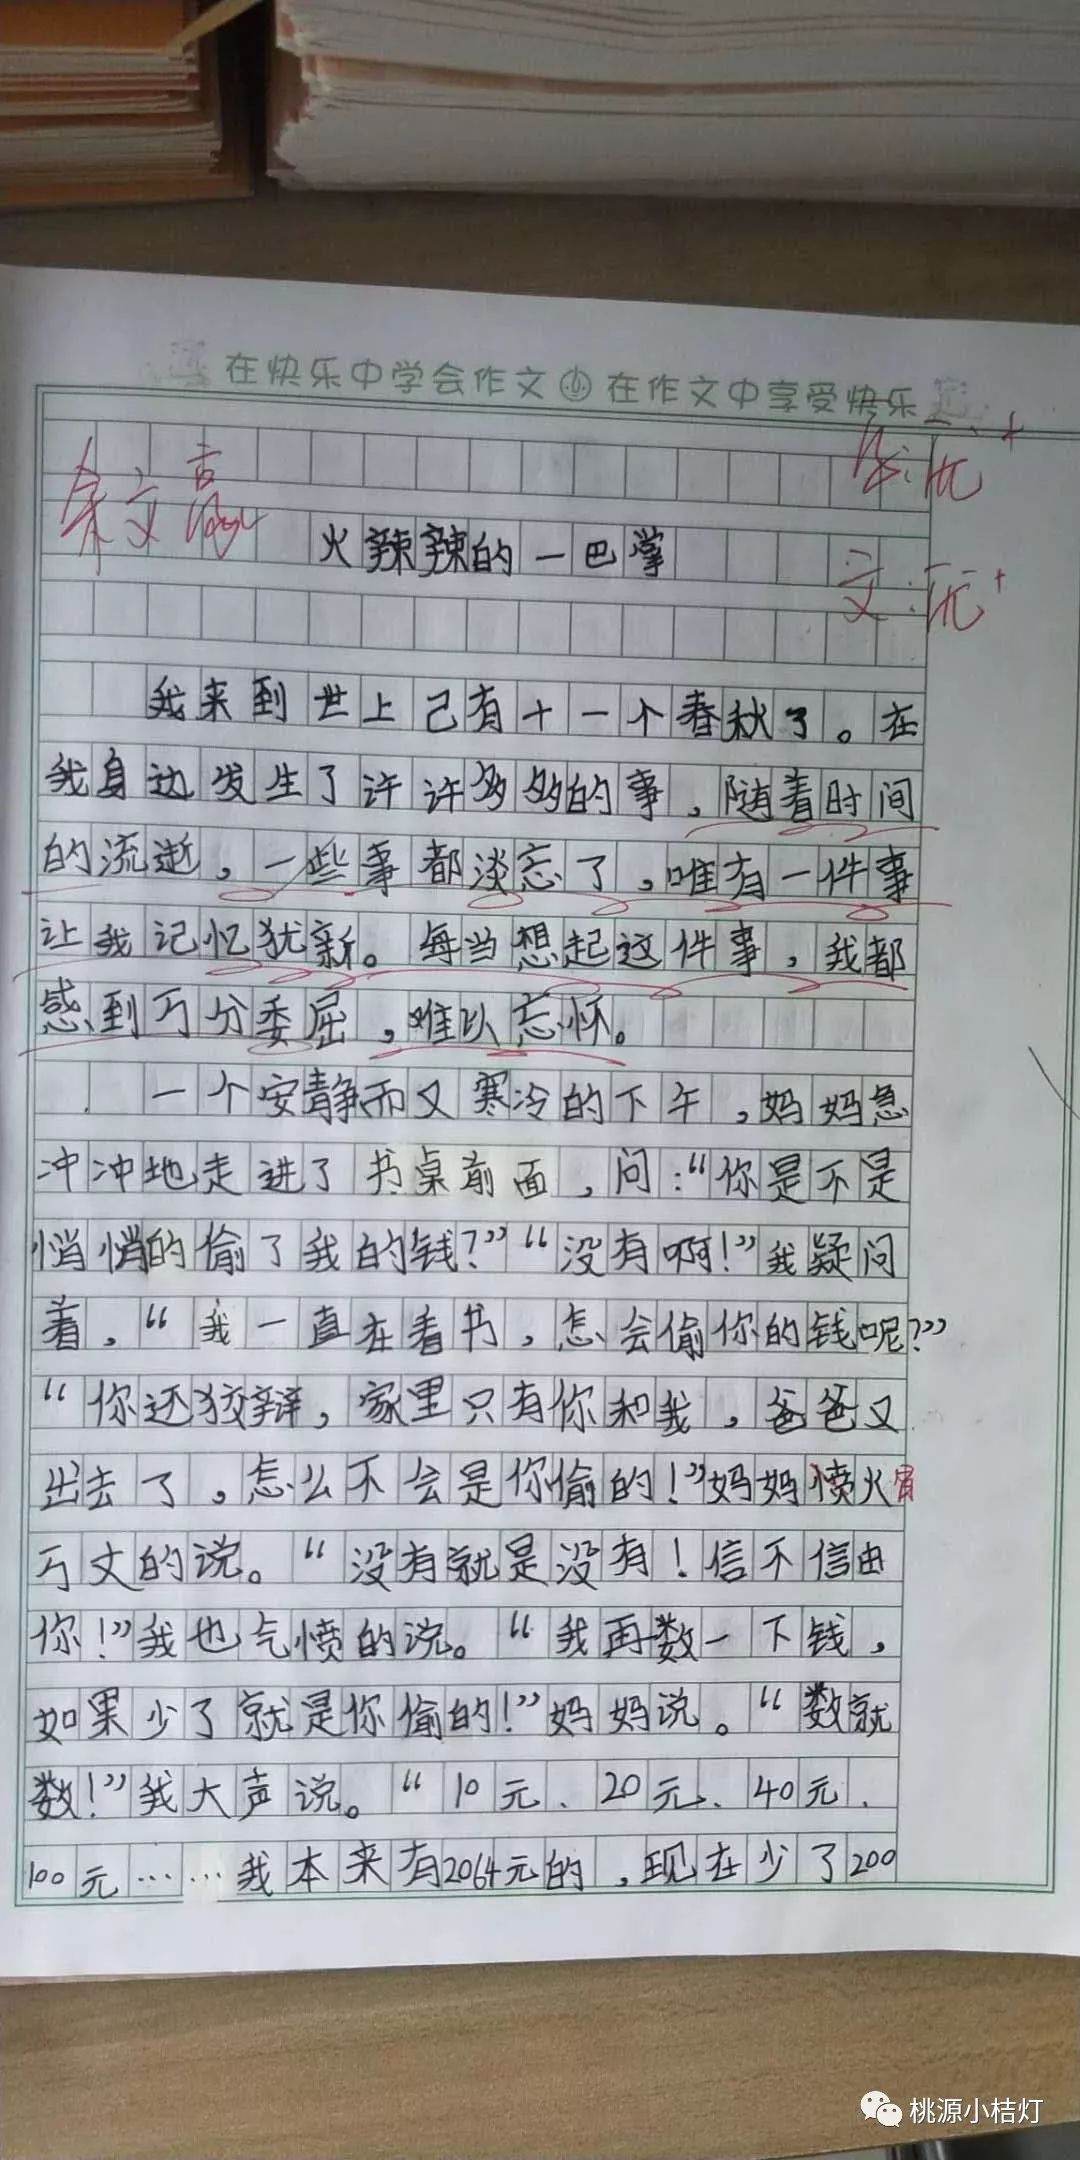 在快乐中学会作文 在作文中享受快乐
火辣辣的一巴掌
文:优+
我来到世上己有十一个春秋了。在
我身边发生了许许多多的事,随着时间
的流逝,一些事都淡忘了,唯有一件事
让我记忆犹新。每当想起这件事,我都
感到万分委屈,难以忘怀。
一个安静而又寒冷的下午,妈妈急
冲冲地走进了书桌前面,问:“你是不是
悄悄的偷了我的钱?”“没有啊!”我疑问
着,“我一直在看书,怎会偷你的钱呢?”
“你还狡辩,家里只有你和我,爸爸又
出去了,怎么不会是你偷的!”妈妈愤火冒
万丈的说。“没有就是没有!信不信由
你!”我也气愤的说。“我再数一下钱,
如果少了就是你偷的!”妈妈说。“数就
数!”我大声说。“10元、20元、40元、
100元……我本来有2064元的,现在少了200
桃源小桔灯